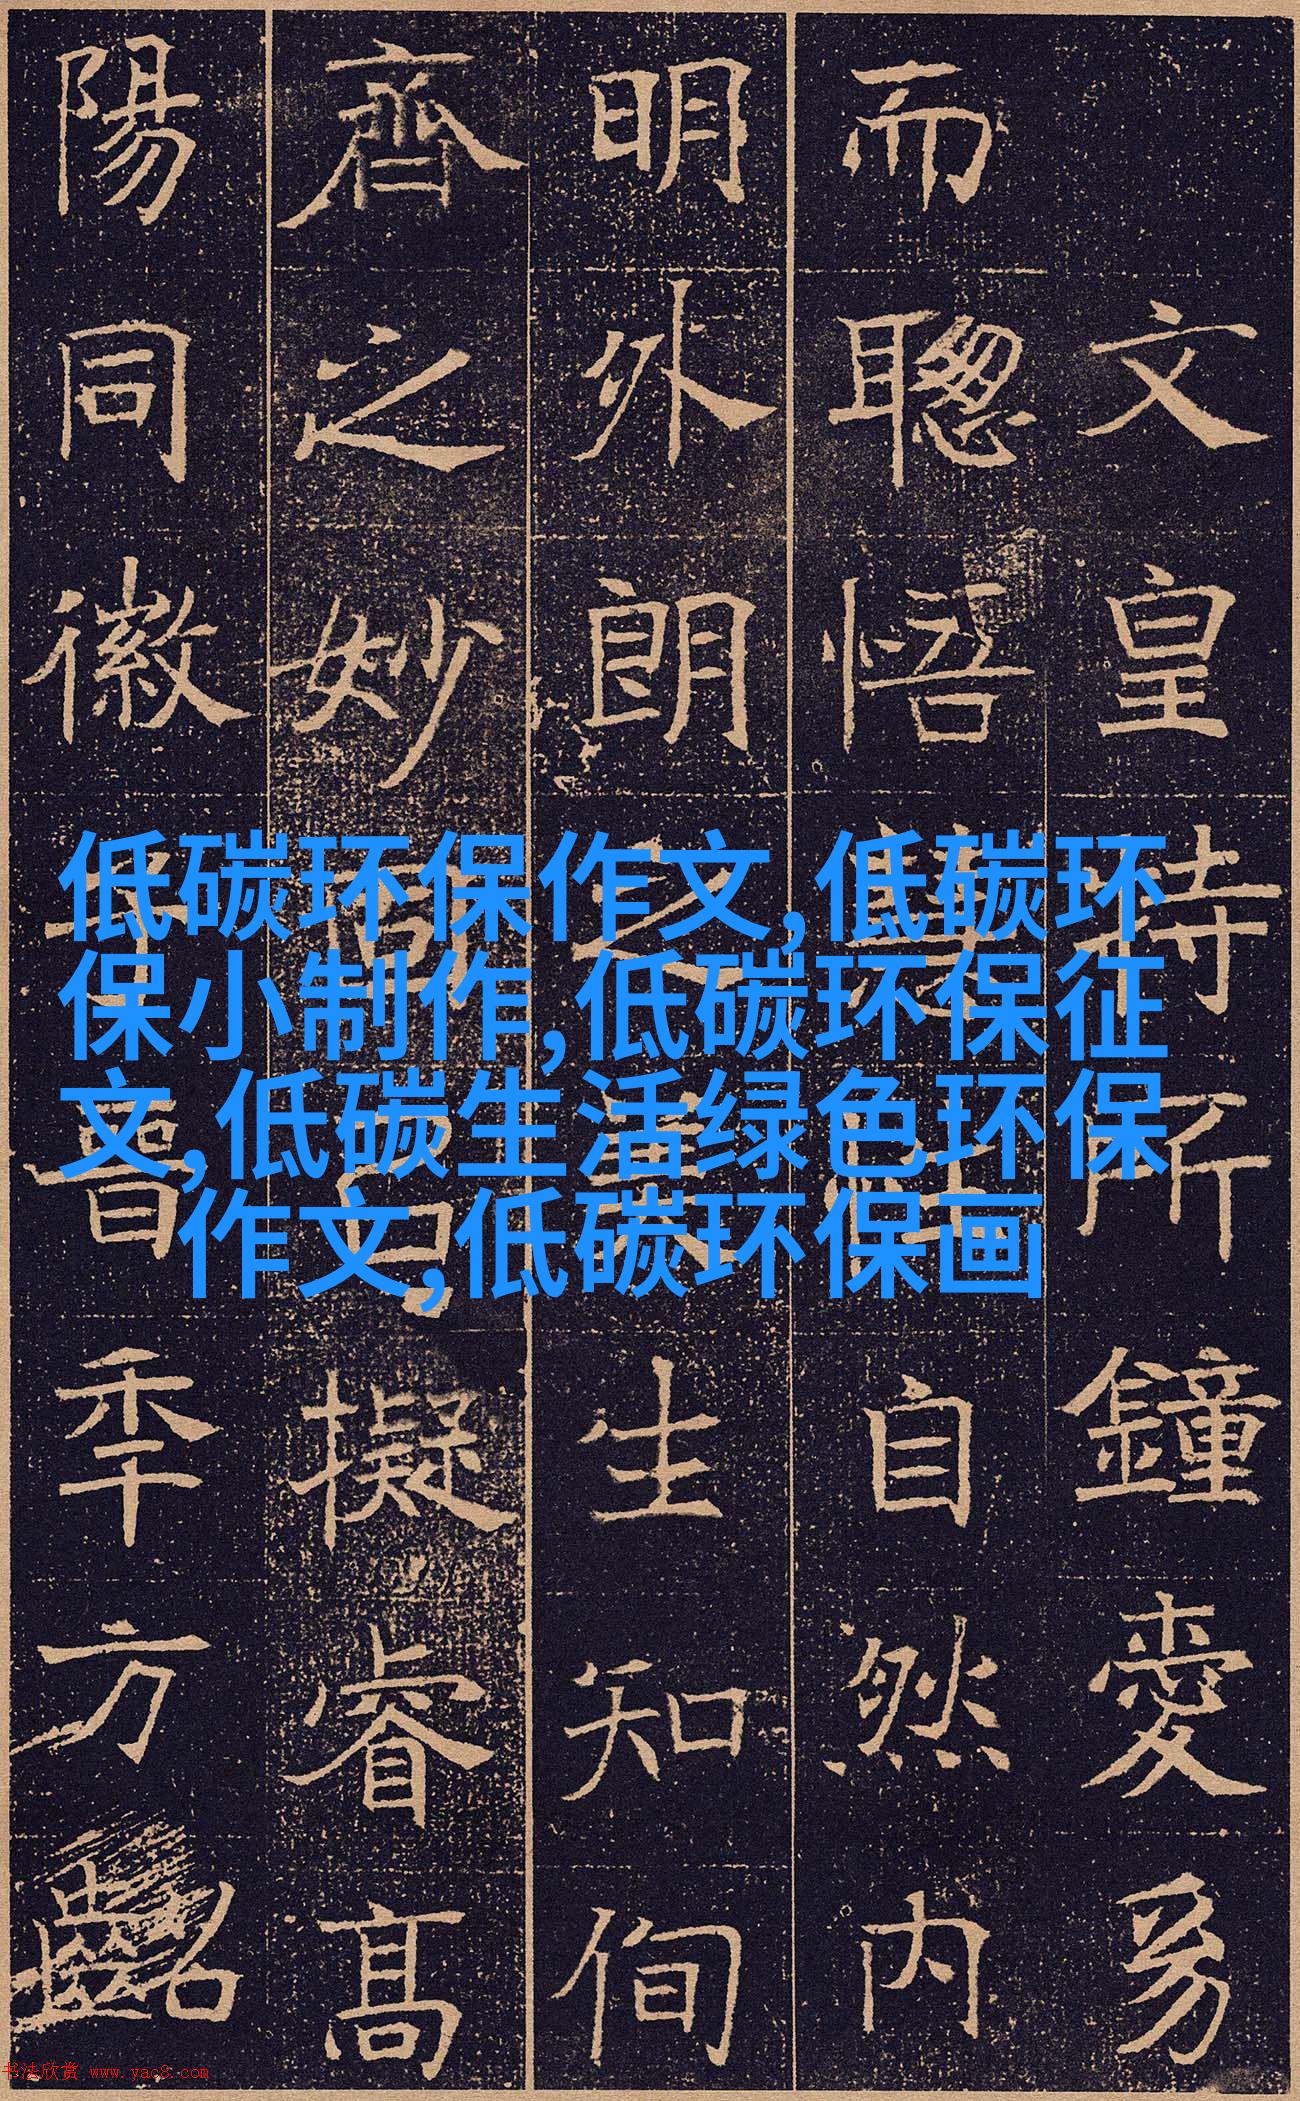 文皇特所鐘愛
而聰悟自然内
明外朗之生知徇
齊之妙擬睿高
陽同徽晉季方齠
低碳环保作文,低碳环
保小制作,低碳环保征
文,低碳生活绿色环保
作文,低碳环保画
书法欣赏 www.yac8.com